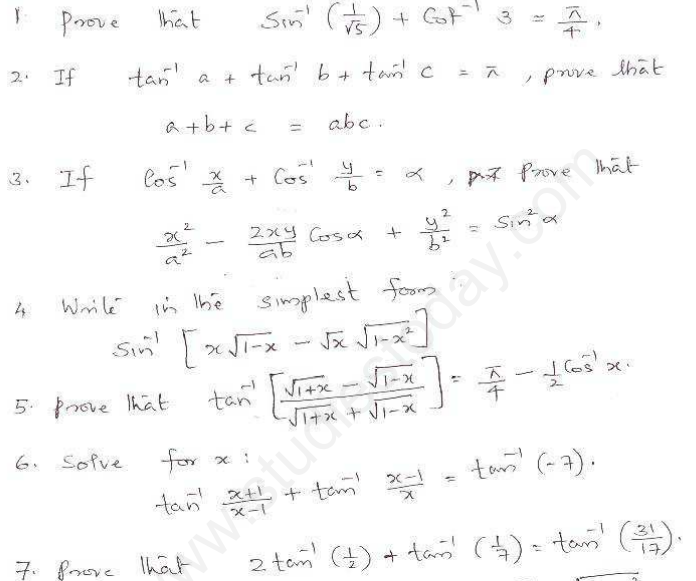 1 Prove that sin⁻¹ (1/√5) + Cot⁻¹ 3 = π/4.
2. If tan⁻¹ a + tan⁻¹ b + tan⁻¹ c = π, prove that
a+b+c = abc.
3. If Cos⁻¹ x/a + Cos⁻¹ y/b = α, Prove that
x²/a² − 2xy/ab Cosα + y²/b² = Sin²α
4 Write in the simplest form :
Sin⁻¹ [x√(1−x) − √x √(1−x²)]
5. Prove that tan⁻¹ [(√(1+x) − √(1−x))/(√(1+x) + √(1−x))] = π/4 − 1/2 Cos⁻¹ x.
6. Solve for x :
tan⁻¹ (x+1)/(x−1) + tan⁻¹ (x−1)/x = tan⁻¹ (−7).
7. Prove that 2 tan⁻¹ (1/2) + tan⁻¹ (1/7) = tan⁻¹ (31/17).
www.studiestoday.com